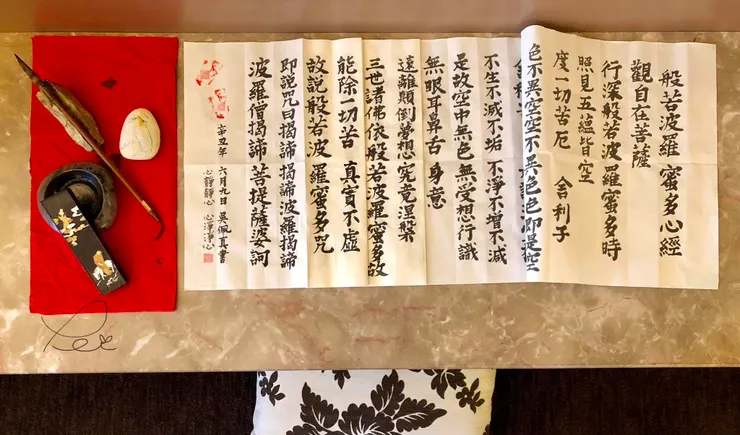 般若波羅蜜多心經
觀自在菩薩
行深般若波羅蜜多時
照見五蘊皆空
度一切苦厄 舍利子
色不異空空不異色色即是空
不生不滅不垢 不淨不增不減
是故空中無色 無受想行識
無眼耳鼻舌 身意
遠離顛倒夢想究竟涅槃
三世諸佛依般若波羅蜜多故
能除一切苦 真實不虛
故說般若波羅蜜多咒
即說咒曰揭諦揭諦波羅揭諦
波羅僧揭諦 菩提薩婆訶
辛丑年 六月九日 吳佩真書
心靜靜心 心淨淨心